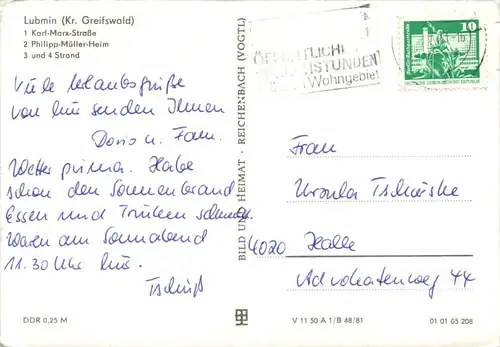 Lubmin (Kr. Greifswald)
1 Karl-Marx-Straße
2 Philipp-Müller-Heim
3 und 4 Strand
Viele Urlaubsgrüße
von hier senden Ihnen
Doris u. Fam.
Wetter prima. Habe
schon den Sonnenbrand
Essen und Trinken schmeckt.
Waren am Sonnabend
11.30 Uhr hier.
Tschüß
DDR 0,25 M
BILD UND HEIMAT · REICHENBACH (VOGTL)
ÖFFENTLICHE
STUNDEN
Wohngebiet
10
DEUTSCHE DEMOKRATISCHE REPUBLIK
Frau
Ursula
4020 Halle
Advokatenweg 44
V 11 50 A 1/B 48/81
01 01 05 208